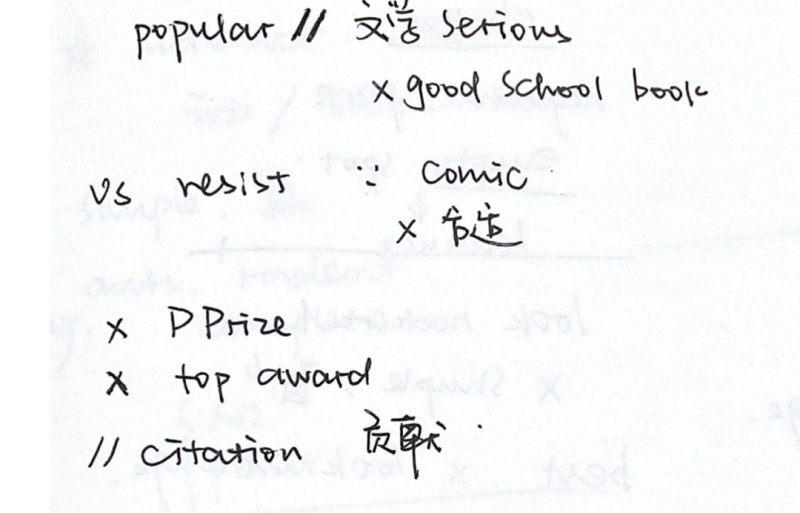 popular // 文学 serious
x good school book
vs resist ∵ comic
x 合适
x P Prize
x top award
// citation 贡献